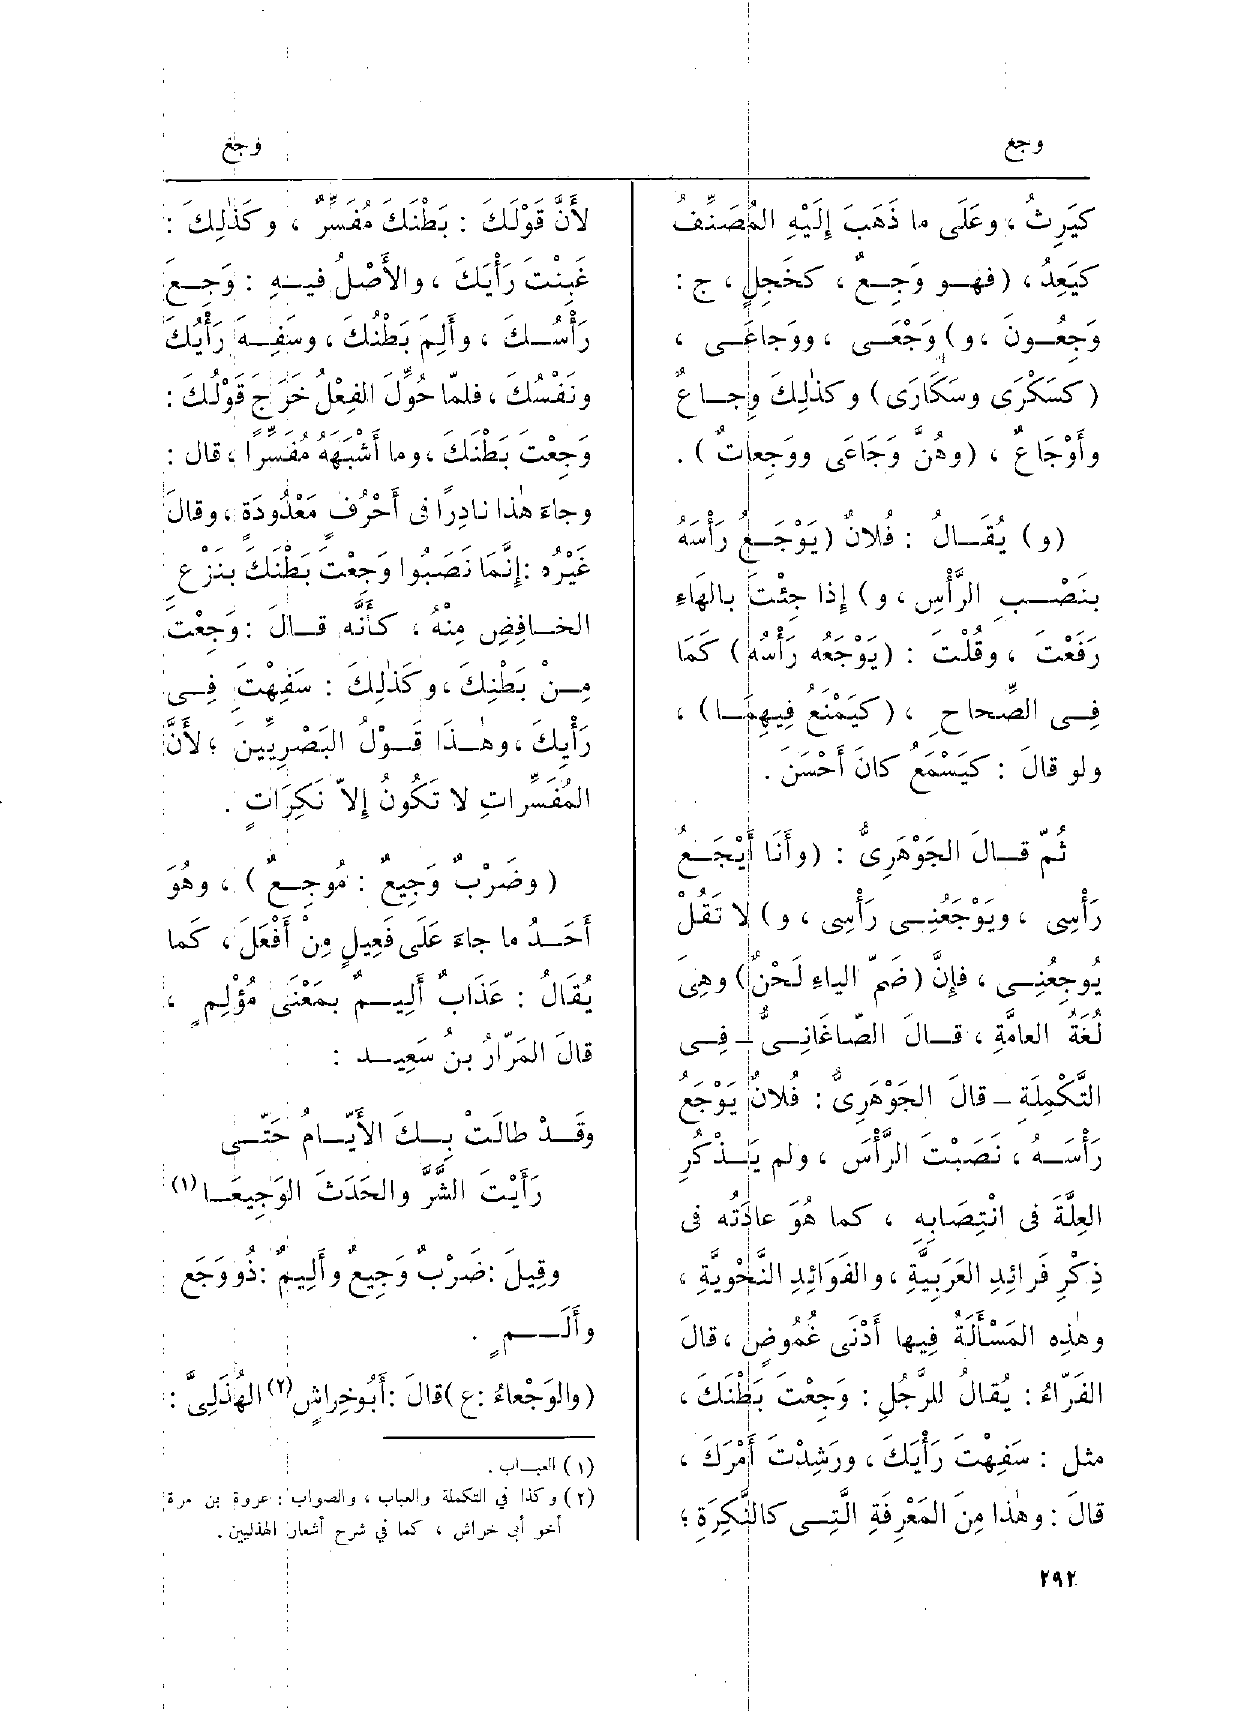 وجع
وجع
كَيَرِثُ ، وعَلَى ما ذَهَبَ إِلَيْهِ المُصَنِّفُ
كيَعِدُ ، (فهـو وَجِـعٌ ، كخَجِلٍ ، ج :
وَجِعُـونَ ، و) وَجْعَـى ، ووَجَاعَـى ،
(كسَكْرَى وسَكَارَى) وكذٰلِكَ وِجـاعٌ
وأَوْجَاعٌ ، (وهُنَّ وَجَاعَى ووَجِعاتٌ) .
(و) يُقَـالُ : فُلانٌ (يَوْجَـعُ رَأْسَهُ
بنَصْـبِ الرَّأْسِ ، و) إِذا جِئْتَ بالهَاءِ
رَفَعْتَ ، وقُلْتَ : (يَوْجَعُه رَأْسُهُ) كَمَا
فِـى الصِّحاحِ ، (كيَمْنَعُ فِيهِمَـا) ،
ولو قالَ : كيَسْمَعُ كانَ أَحْسَنَ .
ثُمَّ قـالَ الجَوْهَرِىُّ : (وأَنَا أَيْجَـعُ
رَأْسِى ، ويَوْجَعُنِـى رَأْسِى ، و) لا تَقُلْ
يُوجِعُنِـى ، فإِنَّ (ضَمَّ الياءِ لَحْنٌ) وهِىَ
لُغَةُ العامَّةِ ، قـالَ الصّاغَانِـىُّ – فِـى
التَّكْمِلَةِ – قالَ الجَوْهَرِىُّ : فُلانٌ يَوْجَعُ
رَأْسَـهُ ، نَصَبْتَ الرَّأْسَ ، ولم يَـذْكُرِ
العِلَّةَ فى انْتِصَابِهِ ، كما هُوَ عادَتُه فى
ذِكْرِ فَرائِدِ العَرَبِيَّةِ ، والفَوَائِدِ النَّحْوِيَّةِ ،
وهٰذِه المَسْأَلَةُ فِيها أَدْنَى غُمُوضٍ ، قالَ
الفَرّاءُ : يُقالُ للرَّجُلِ : وَجِعْتَ بَطْنَكَ ،
مثل : سَفِهْتَ رَأْيَكَ ، ورَشِدْتَ أَمْرَكَ ،
قالَ : وهٰذا مِنَ المَعْرِفَةِ الَّتِـى كالنَّكِرَةِ ؛
لأَنَّ قَوْلَكَ : بَطْنَكَ مُفَسِّرٌ ، وكَذٰلِكَ :
غَبِنْتَ رَأْيَكَ ، والأَصْلُ فيـهِ : وَجِـعَ
رَأْسُـكَ ، وأَلِمَ بَطْنُكَ ، وسَفِـهَ رَأْيُكَ
ونَفْسُكَ ، فلمّا حُوِّلَ الفِعْلُ خَرَجَ قَوْلُكَ :
وَجِعْتَ بَطْنَكَ ، وما أَشْبَهَهُ مُفَسِّرًا ، قال :
وجاءَ هٰذا نادِرًا فى أَحْرُفٍ مَعْدُودَةٍ ، وقالَ
غَيْرُه : إِنَّمَا نَصَبُوا وَجِعْتَ بَطْنَكَ بنَزْعِ
الخـافِضِ مِنْهُ ، كأَنَّه قـالَ : وَجِعْتَ
مِـنْ بَطْنِكَ ، وكَذٰلِكَ : سَفِهْتَ فِـى
رَأْيِكَ ، وهٰـذَا قَـوْلُ البَصْرِيِّينَ ؛ لأَنَّ
المُفَسِّراتِ لا تَكُونُ إِلاّ نَكِرَاتٍ .
( وضَرْبٌ وَجِيعٌ : مُوجِـعٌ ) ، وهُوَ
أَحَـدُ ما جاءَ عَلَى فَعِيلٍ مِنْ أَفْعَلَ ، كما
يُقَالُ : عَذَابٌ أَلِيـمٌ بمَعْنَى مُؤْلِمٍ ،
قالَ المَرّارُ بنُ سَعِيـد :
وقَـدْ طالَتْ بِـكَ الأَيّـامُ حَتّـى
رَأَيْتَ الشَّرَّ والحَدَثَ الوَجِيعَـا (١)
وقِيلَ : ضَرْبٌ وَجِيعٌ وأَلِيمٌ : ذُو وَجَعٍ
وأَلَـــمٍ .
(والوَجْعاءُ : ع) قالَ : أَبُو خِراشٍ (٢) الهُذَلِىُّ :
(١) العبـاب .
(٢) وكذا في التكملة والعباب ، والصواب : عروة بن مرة
أخو أبى خراش ، كما في شرح أشعار الهذليين .
٢٩٢